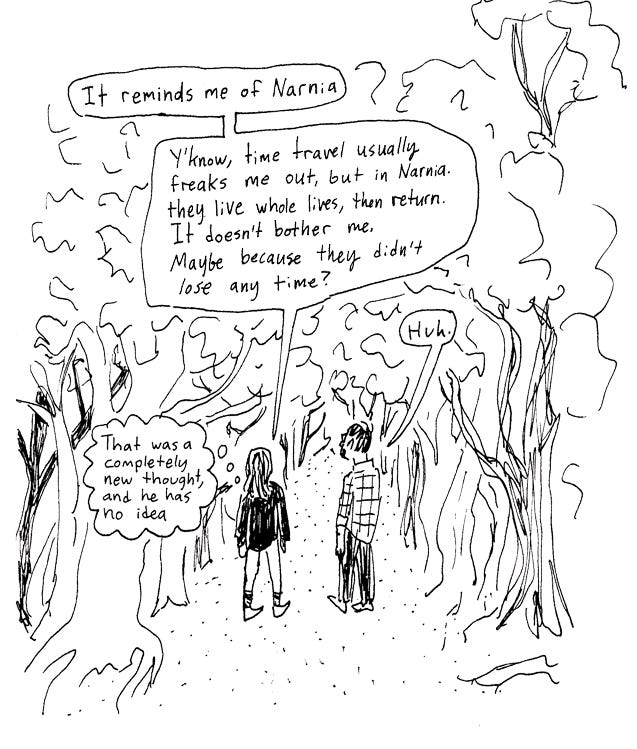 It reminds me of Narnia
Y'know, time travel usually
freaks me out, but in Narnia.
they live whole lives, then return.
It doesn't bother me.
Maybe because they didn't
lose any time?
Huh.
That was a
completely
new thought,
and he has
no idea